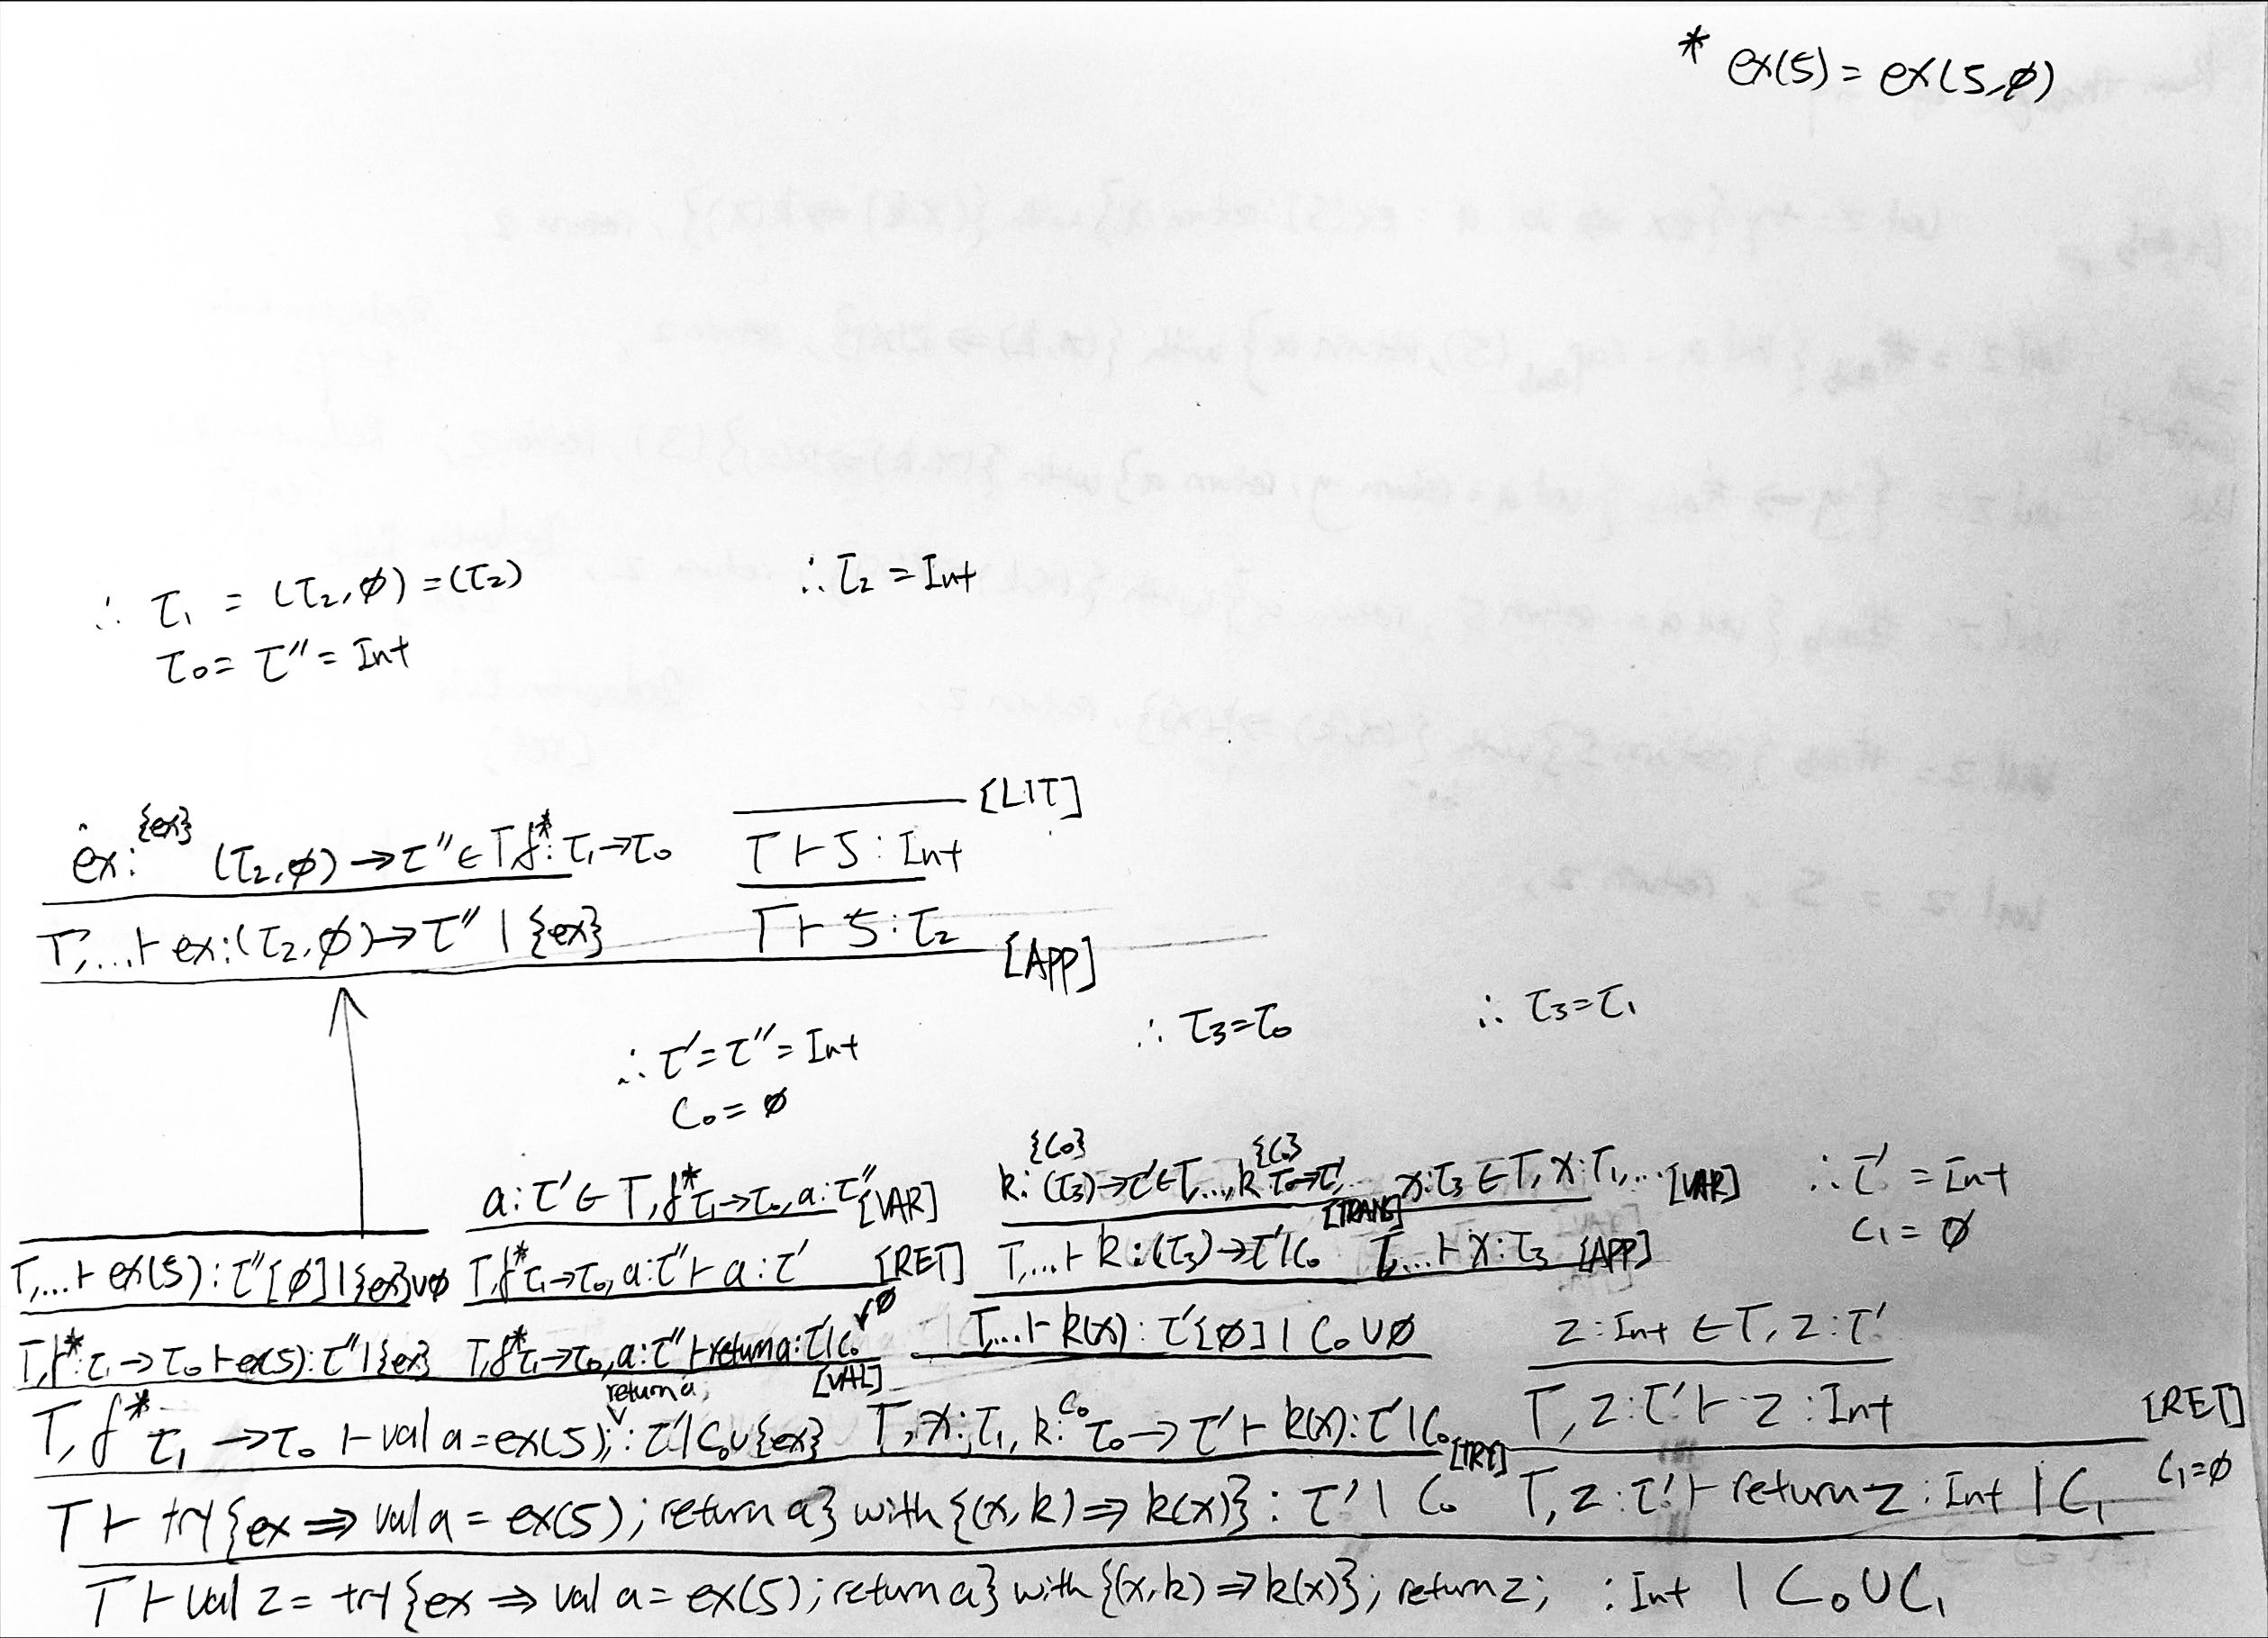 * ex(5) = ex(5,ϕ)
∴ τ₁ = (τ₂,ϕ) = (τ₂)
τ₀ = τ'' = Int
∴ τ₂ = Int
[LIT]
ex:^{ex} (τ₂,ϕ) → τ'' ∈ Γ, f:* τ₁→τ₀
Γ ⊢ 5 : Int
Γ,... ⊢ ex:(τ₂,ϕ) → τ'' | {ex}
Γ ⊢ 5 : τ₂
[APP]
∴ τ' = τ'' = Int
C₀ = ϕ
∴ τ₃ = τ₀
∴ τ₃ = τ₁
a : τ' ∈ Γ, f:* τ₁→τ₀, a : τ'' [VAR]
k:^{C₀} (τ₃) → τ' ∈ Γ,..., k:^{C₀} τ₀→τ', ... [TRANS] x:τ₃ ∈ Γ, x:τ₁,... [VAR]
∴ τ' = Int
C₁ = ϕ
Γ,... ⊢ ex(5) : τ''[ϕ] | {ex}∪ϕ
Γ, f:* τ₁→τ₀, a:τ'' ⊢ a : τ' [RET]
Γ,... ⊢ k : (τ₃) → τ' | C₀ Γ,... ⊢ x : τ₃ [APP]
Γ, f:* τ₁→τ₀ ⊢ ex(5) : τ'' | {ex}
Γ, f:* τ₁→τ₀, a:τ'' ⊢ return a : τ' | C₀ ↙ϕ [VAL]
Γ,... ⊢ k(x) : τ'[ϕ] | C₀ ∪ ϕ
z : Int ∈ Γ, z : τ'
Γ, f:* τ₁ → τ₀ ⊢ val a = ex(5); return a; : τ' | C₀ ∪ {ex}
Γ, x:τ₁, k:^{C₀} τ₀ → τ' ⊢ k(x) : τ' | C₀ [TRY]
Γ, z : τ' ⊢ z : Int [RET]
Γ ⊢ try {ex ⇒ val a = ex(5); return a} with {(x,k) ⇒ k(x)} : τ' | C₀
Γ, z : τ' ⊢ return z : Int | C₁ C₁=ϕ
Γ ⊢ val z = try {ex ⇒ val a = ex(5); return a} with {(x,k) ⇒ k(x)}; return z; : Int | C₀ ∪ C₁